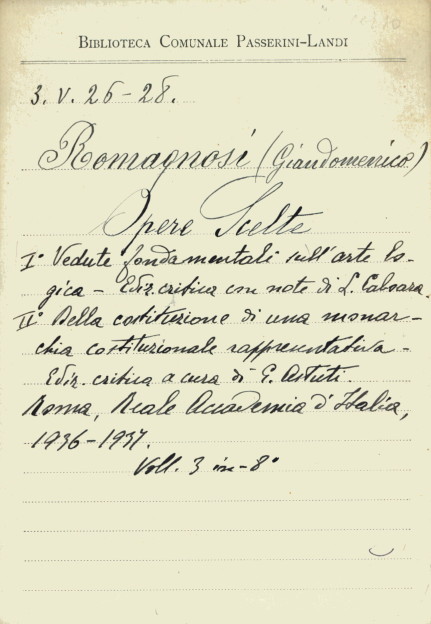 BIBLIOTECA COMUNALE PASSERINI-LANDI
3. V. 26-28.
Romagnosi (Giandomenico)
Opere Scelte
I° Vedute fondamentali sull'arte lo-
gica - Ediz. critica con note di L. Caboara.
II° Della costituzione di una monar-
chia costituzionale rappresentativa -
Ediz. critica a cura di G. Astuti.
Roma, Reale Accademia d'Italia,
1936-1937.
Voll. 3 in-8°